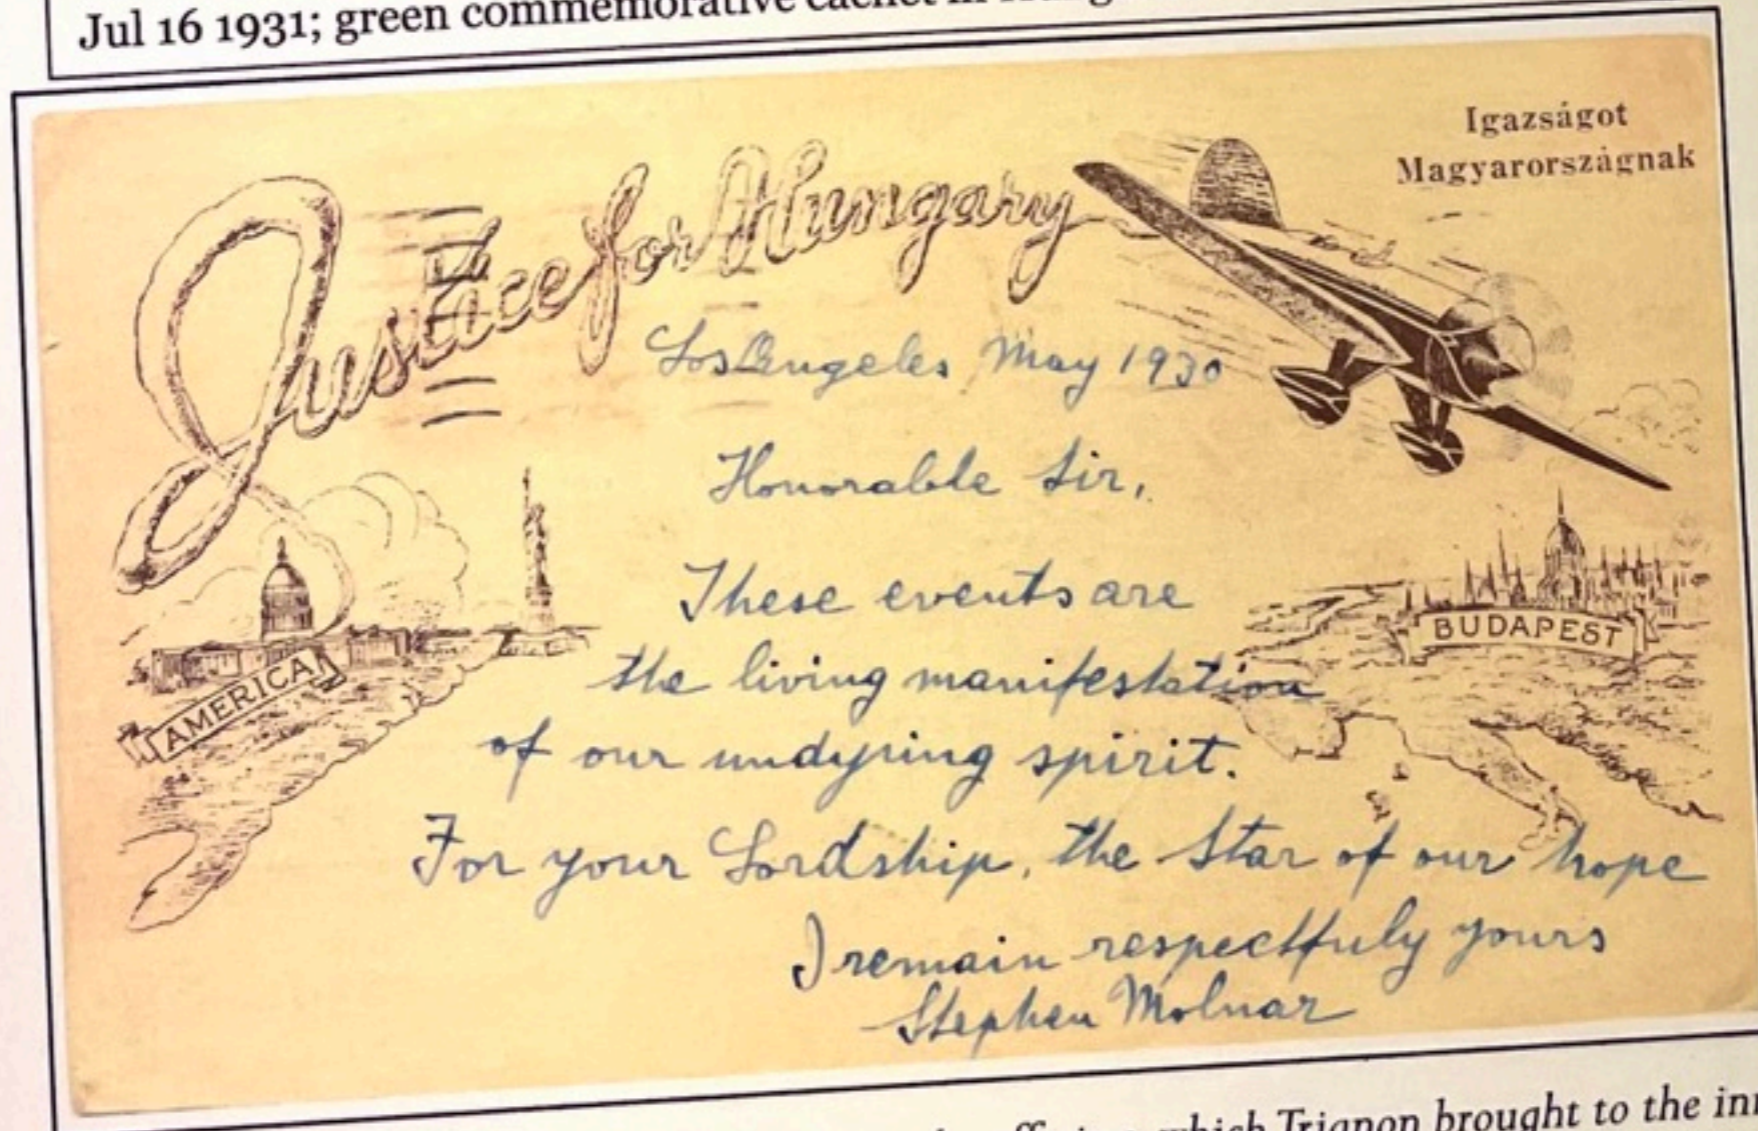 Jul 16 1931; green commemorative cachet in
Justice for Hungary
Igazságot
Magyarországnak
Los Angeles May 1930
Honorable Sir,
These events are
the living manifestation
of our undyring spirit.
For your Lordship, the Star of our hope
I remain respectfuly yours
Stephen Molnar
AMERICA
BUDAPEST
which Trianon brought to the